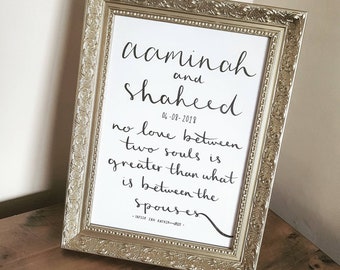 aaminah
and
shaheed
04-08-2018
no love between
two souls is
greater than what
is between the
spouses